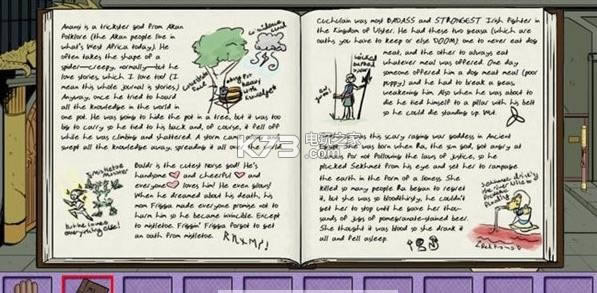 Anansi is a trickster god from Akan
Folklore (the Akan people live in
what's West Africa today). He
often takes the shape of a
spider—creepy, normally—but he
loves stories, which I love too! (I
mean this whole journal is stories)
Anyway, once he tried to hoard
all the knowledge in the world in
one pot. He was going to hide the pot in a tree, but it was too
big to carry so he tied to his back and, of course, it fell off
while he was climbing and shattered. A storm came
swept all the knowledge away, spreading it all over the world.
mistletoe
but he loves
everything else!
Baldr is the cutest Norse god! He's
handsome and cheerful and
everyone loves him! He even glows!
When he dreamed about his death, his
mom Frigga made everyone promise not to
harm him so he became invincible. Except
to mistletoe. Friggin' Frigga forgot to get
an oath from mistletoe.
Cuchulain was most BADASS and STRONGEST Irish fighter in
the Kingdom of Ulster. He had these two geasa (which are
oaths you have to keep or else DOOM) one to never eat dog
meat, and the other to always eat
whatever meal was offered. One day
someone offered him a dog meat meal (poor
puppy) and he had to break a geas,
weakening him. Also when he was about to
die he tied himself to a pillar with his belt
so he could die standing up. Wut.
was this scary raging war goddess in Ancient
She was born when Ra, the sun god, got angry at
for not following the laws of justice, so he
plucked Sekhmet from his eye and set her to rampage
the earth in the form of a lioness. She
killed so many people Ra began to regret
it, but she was so bloodthirsty, he couldn't
get her to stop until he gave her thou-
sands of jugs of pomegranate-stained beer.
She thought it was blood so she drank it
all and fell asleep.
K73
电玩之家
.com